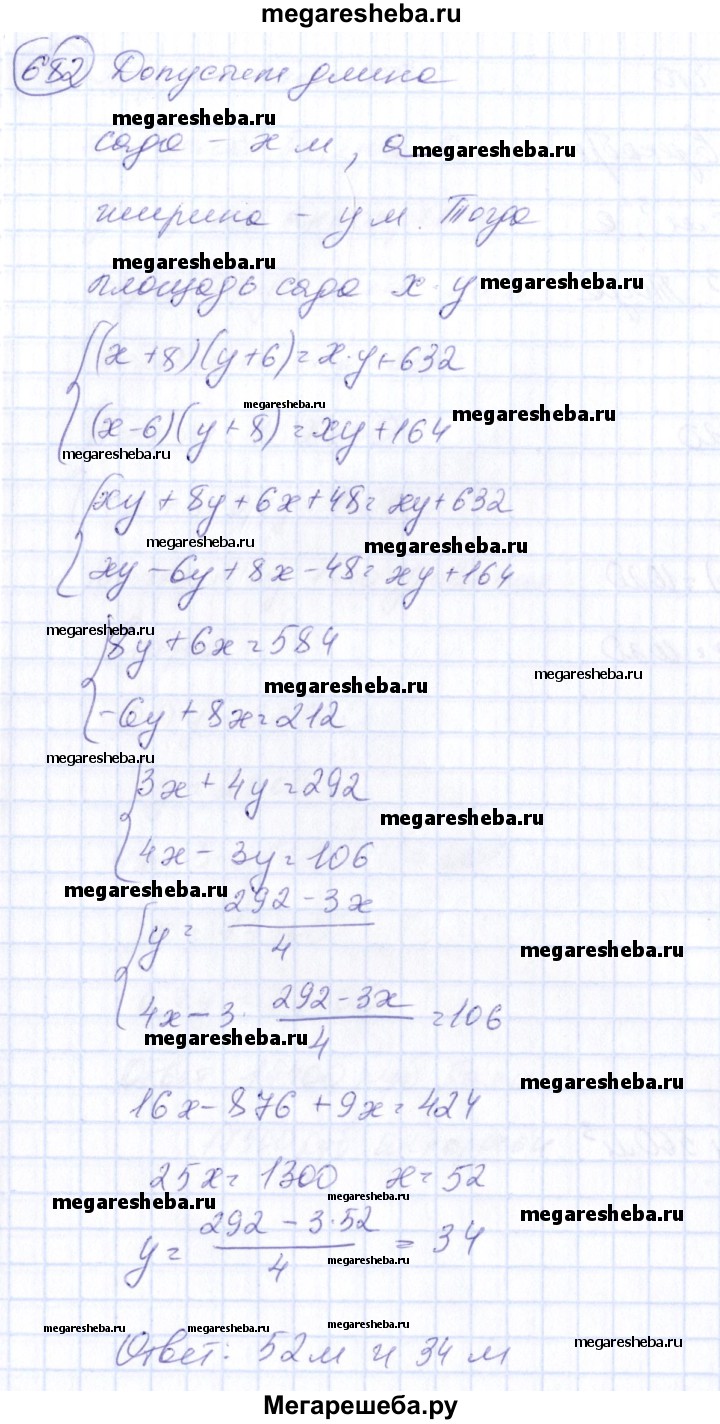 megaresheba.ru
682 Допустим длина
megaresheba.ru
сада - x м, а megaresheba.ru
ширина - y м. Тогда
megaresheba.ru
площадь сада x·y megaresheba.ru
(x+8)(y+6)=x·y+632
megaresheba.ru
(x-6)(y+8)=xy+164 megaresheba.ru
megaresheba.ru
xy+8y+6x+48=xy+632
megaresheba.ru megaresheba.ru
xy-6y+8x-48=xy+164
megaresheba.ru
8y+6x=584
megaresheba.ru megaresheba.ru
-6y+8x=212
megaresheba.ru
3x+4y=292
megaresheba.ru
4x-3y=106
megaresheba.ru
y=(292-3x)/4
megaresheba.ru
4x-3·(292-3x)/4=106
megaresheba.ru
megaresheba.ru
16x-876+9x=424
25x=1300 x=52
megaresheba.ru megaresheba.ru
megaresheba.ru
y=(292-3·52)/4=34
megaresheba.ru
megaresheba.ru megaresheba.ru megaresheba.ru
Ответ: 52м и 34 м
megaresheba.ru
Мегарешеба.ру